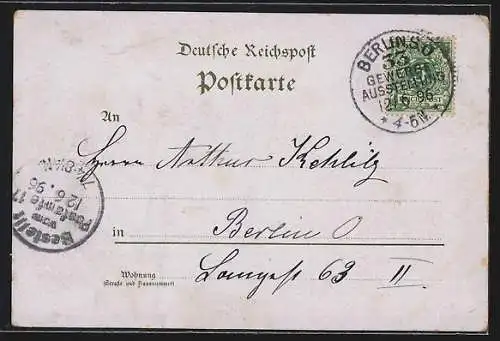 Deutsche Reichspost
Postkarte
BERLIN S.O.
33
GEWERBE-
AUSSTELLUNG
12/6 96
4-5N.
An
Herrn Arthur
in Berlin O
Wohnung
(Straße und Hausnummer)
63 II
Bestellt
vom
Postamte 17
12.6.96